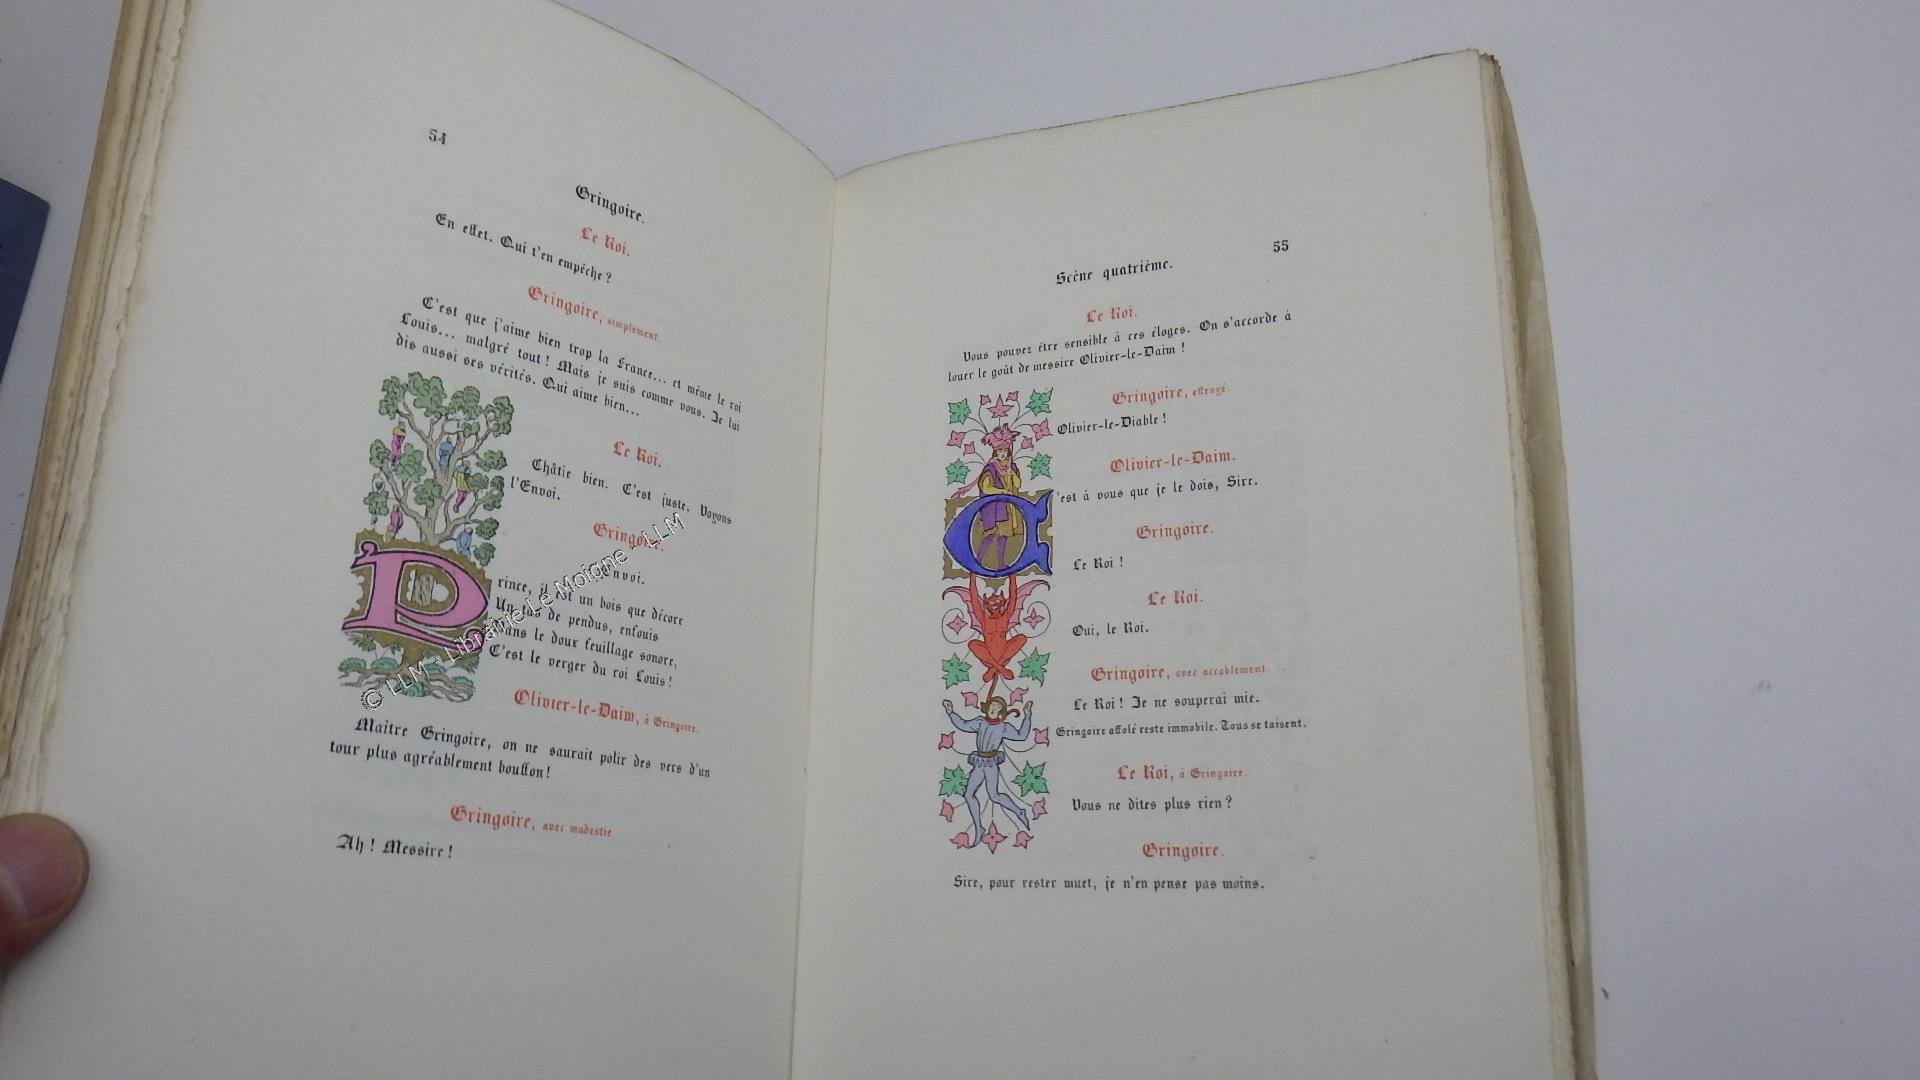 54
Gringoire.
Le Roi.
En effet. Qui t'en empêche ?
Gringoire, simplement.
C'est que j'aime bien trop la France... et même le roi
Louis... malgré tout ! Mais je suis comme vous. Je lui
dis aussi ses vérités. Qui aime bien...
Le Roi.
Châtie bien. C'est juste. Voyons
l'Envoi.
Gringoire.
Envoi.
Prince, il est un bois que décore
Un tas de pendus, enfouis
Dans le doux feuillage sonore,
C'est le verger du roi Louis !
Olivier-le-Daim, à Gringoire.
Maître Gringoire, on ne saurait polir des vers d'un
tour plus agréablement bouffon!
Gringoire, avec modestie
Ah ! Messire !
© LLM - Librairie Le Moigne - LLM
55
Scène quatrième.
Le Roi.
Vous pouvez être sensible à ces éloges. On s'accorde à
louer le goût de messire Olivier-le-Daim !
Gringoire, effrayé.
Olivier-le-Diable !
Olivier-le-Daim.
C'est à vous que je le dois, Sire.
Gringoire.
Le Roi !
Le Roi.
Oui, le Roi.
Gringoire, avec accablement.
Le Roi ! Je ne souperai mie.
Gringoire affolé reste immobile. Tous se taisent.
Le Roi, à Gringoire.
Vous ne dites plus rien ?
Gringoire.
Sire, pour rester muet, je n'en pense pas moins.